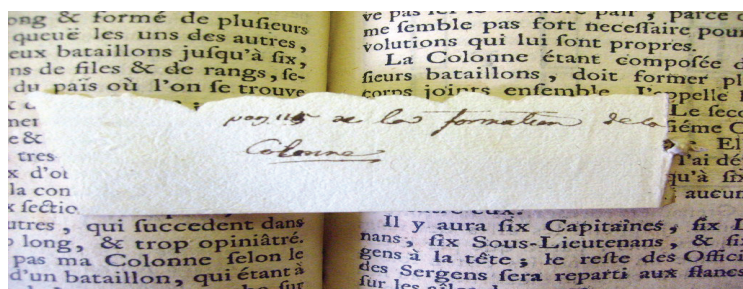 ong & formé de pluſieurs
queuë les uns des autres,
eux bataillons juſqu'à ſix,
ns de files & de rangs, ſe-
du païs où l'on ſe trouve
e &
tres
x d'ot
la con
x ſectio
utres, qui ſuccedent dans
long, & trop opiniâtré.
pas ma Colonne ſelon le
d'un bataillon, qui étant à
de la formation de la
Colonne
me ſemble pas fort neceſſaire pour
volutions qui lui ſont propres.
La Colonne étant compoſée d
ſieurs bataillons, doit former pl
corps joints enſemble. J'appelle
Le ſeco
iéme C
El
J'ai dé
qu'à ſix
aucun
Il y aura ſix Capitaînes, ſix L
nans, ſix Sous-Lieutenans, & ſi
gens à la tête; le reſte des Offici
des Sergens ſera reparti aux flancs